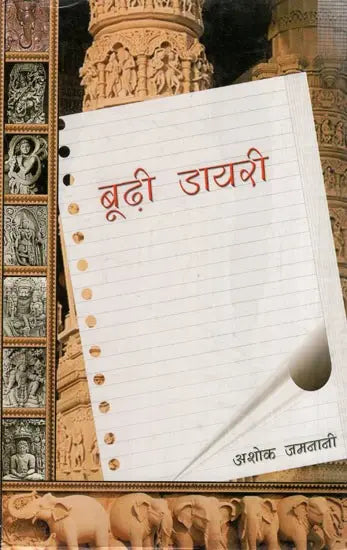 बूढ़ी डायरी
अशोक जमनानी